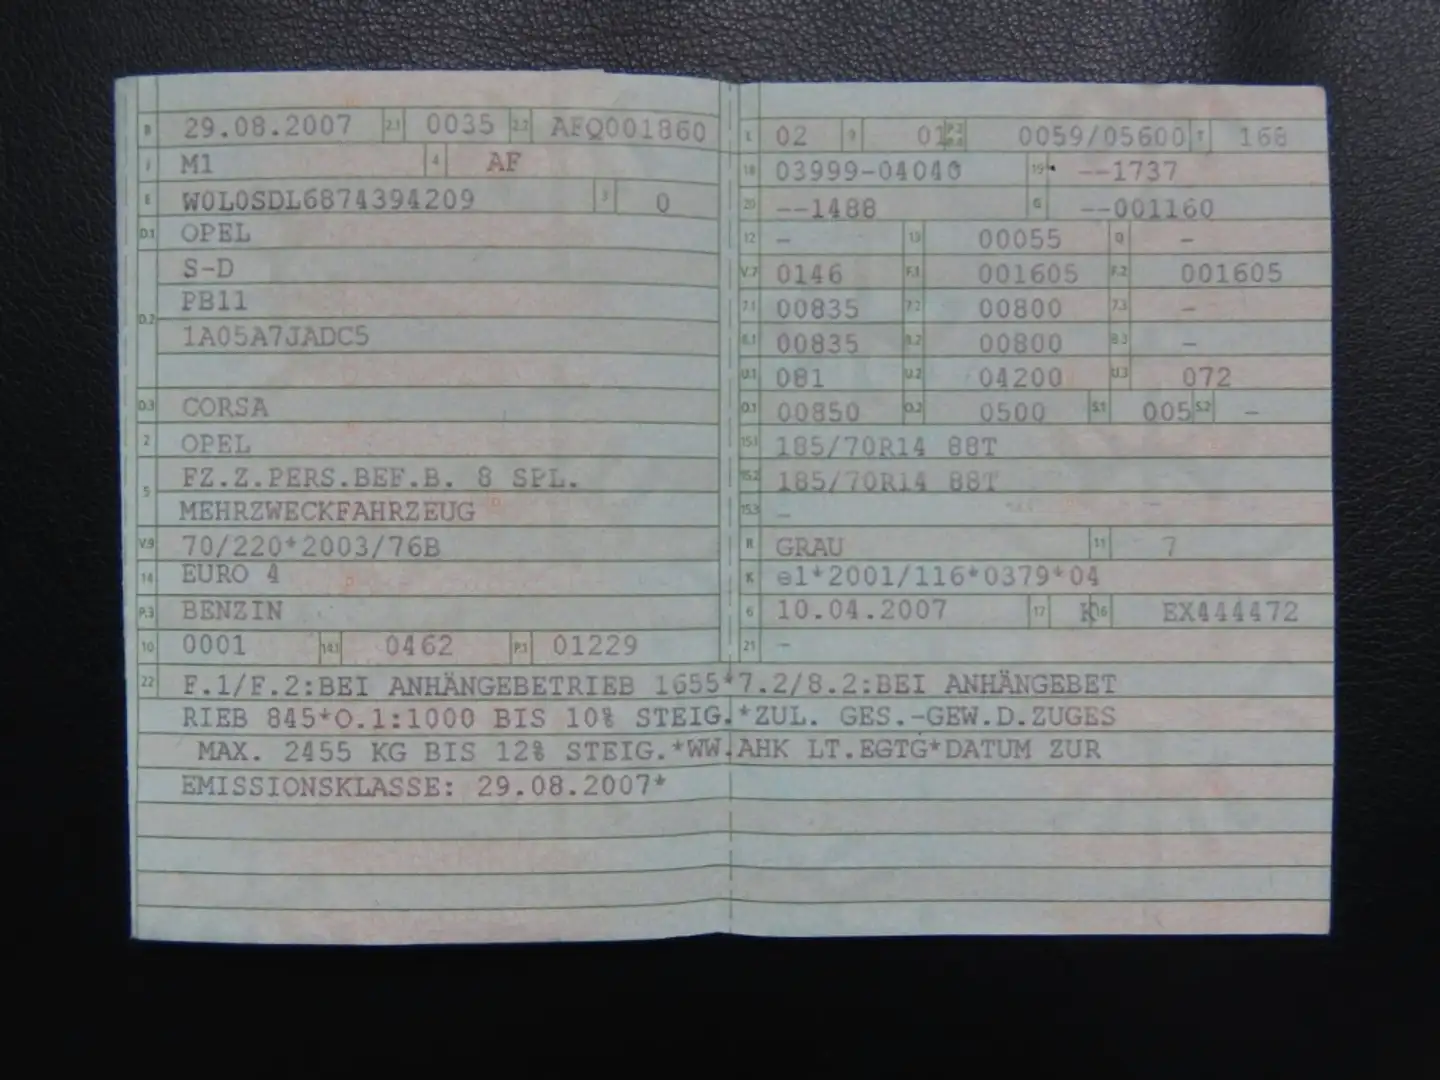 B 29.08.2007 2.1 0035 2.2 AFQ001860
J M1 4 AF
E W0L0SDL6874394209 3 0
D.1 OPEL
S-D
D.2 PB11
1A05A7JADC5
D.3 CORSA
2 OPEL
5 FZ.Z.PERS.BEF.B. 8 SPL.
MEHRZWECKFAHRZEUG
V.9 70/220*2003/76B
14 EURO 4
P.3 BENZIN
10 0001 14.1 0462 P.1 01229
L 02 9 01 P.2 P.4 0059/05600 T 168
18 03999-04040 19 --1737
20 --1488 G --001160
12 - 13 00055 Q -
V.7 0146 F.1 001605 F.2 001605
7.1 00835 7.2 00800 7.3 -
8.1 00835 8.2 00800 8.3 -
U.1 081 U.2 04200 U.3 072
O.1 00850 O.2 0500 S.1 005 S.2 -
15.1 185/70R14 88T
15.2 185/70R14 88T
15.3 -
R GRAU 11 7
K e1*2001/116*0379*04
6 10.04.2007 17 K 16 EX444472
21 -
22 F.1/F.2:BEI ANHÄNGEBETRIEB 1655*7.2/8.2:BEI ANHÄNGEBET
RIEB 845*O.1:1000 BIS 10% STEIG.*ZUL. GES.-GEW.D.ZUGES
MAX. 2455 KG BIS 12% STEIG.*WW.AHK LT.EGTG*DATUM ZUR
EMISSIONSKLASSE: 29.08.2007*